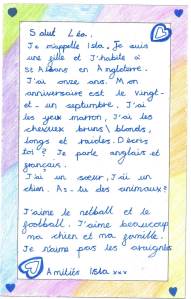 Salut Léo.
Je m'appelle Isla. Je suis
une fille et J'habite à
St Albans en Angleterre.
J'ai onze ans. Mon
anniversaire est le vingt-
et-un septembre. J'ai
les yeux marron, J'ai les
cheveux bruns\blonds,
longs et raides. Décris
toi? Je parle anglais et
français.
J'ai un sœur, J'ai un
chien. As-tu des animaux?
J'aime le netball et le
football. J'aime beaucoup
ma chien et ma famille.
Je n'aime pas les araignés
Amitiés Isla xxx